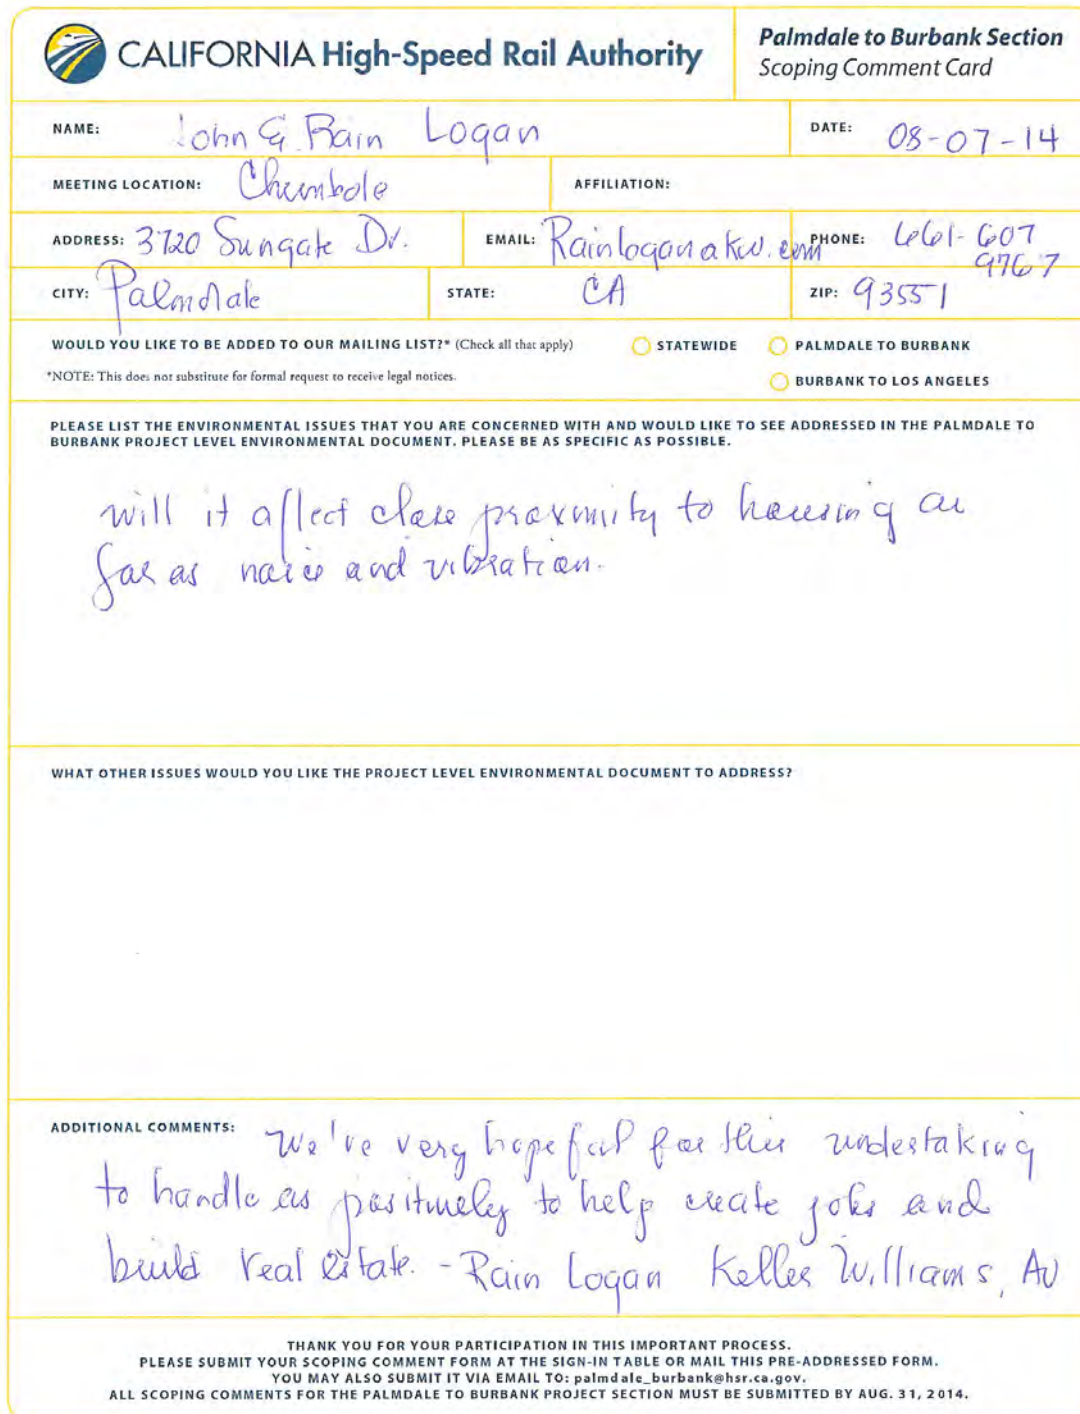 CALIFORNIA High-Speed Rail Authority
Palmdale to Burbank Section
Scoping Comment Card
NAME: John & Rain Logan
DATE: 08-07-14
MEETING LOCATION:
AFFILIATION:
ADDRESS: 3720 Sungate Dr.
EMAIL: Rainlogan@kw.com
PHONE: 661-607
9767
CITY: Palmdale
STATE: CA
ZIP: 93551
WOULD YOU LIKE TO BE ADDED TO OUR MAILING LIST?* (Check all that apply)
STATEWIDE
PALMDALE TO BURBANK
*NOTE: This does not substitute for formal request to receive legal notices.
BURBANK TO LOS ANGELES
PLEASE LIST THE ENVIRONMENTAL ISSUES THAT YOU ARE CONCERNED WITH AND WOULD LIKE TO SEE ADDRESSED IN THE PALMDALE TO
BURBANK PROJECT LEVEL ENVIRONMENTAL DOCUMENT. PLEASE BE AS SPECIFIC AS POSSIBLE.
will it affect close proximity to housing as
far as noise and vibration.
WHAT OTHER ISSUES WOULD YOU LIKE THE PROJECT LEVEL ENVIRONMENTAL DOCUMENT TO ADDRESS?
ADDITIONAL COMMENTS: We've very hopeful for this undertaking
to handle as positively to help create jobs and
build real estate. - Rain Logan Keller Williams, AV
THANK YOU FOR YOUR PARTICIPATION IN THIS IMPORTANT PROCESS.
PLEASE SUBMIT YOUR SCOPING COMMENT FORM AT THE SIGN-IN TABLE OR MAIL THIS PRE-ADDRESSED FORM.
YOU MAY ALSO SUBMIT IT VIA EMAIL TO: palmdale_burbank@hsr.ca.gov.
ALL SCOPING COMMENTS FOR THE PALMDALE TO BURBANK PROJECT SECTION MUST BE SUBMITTED BY AUG. 31, 2014.